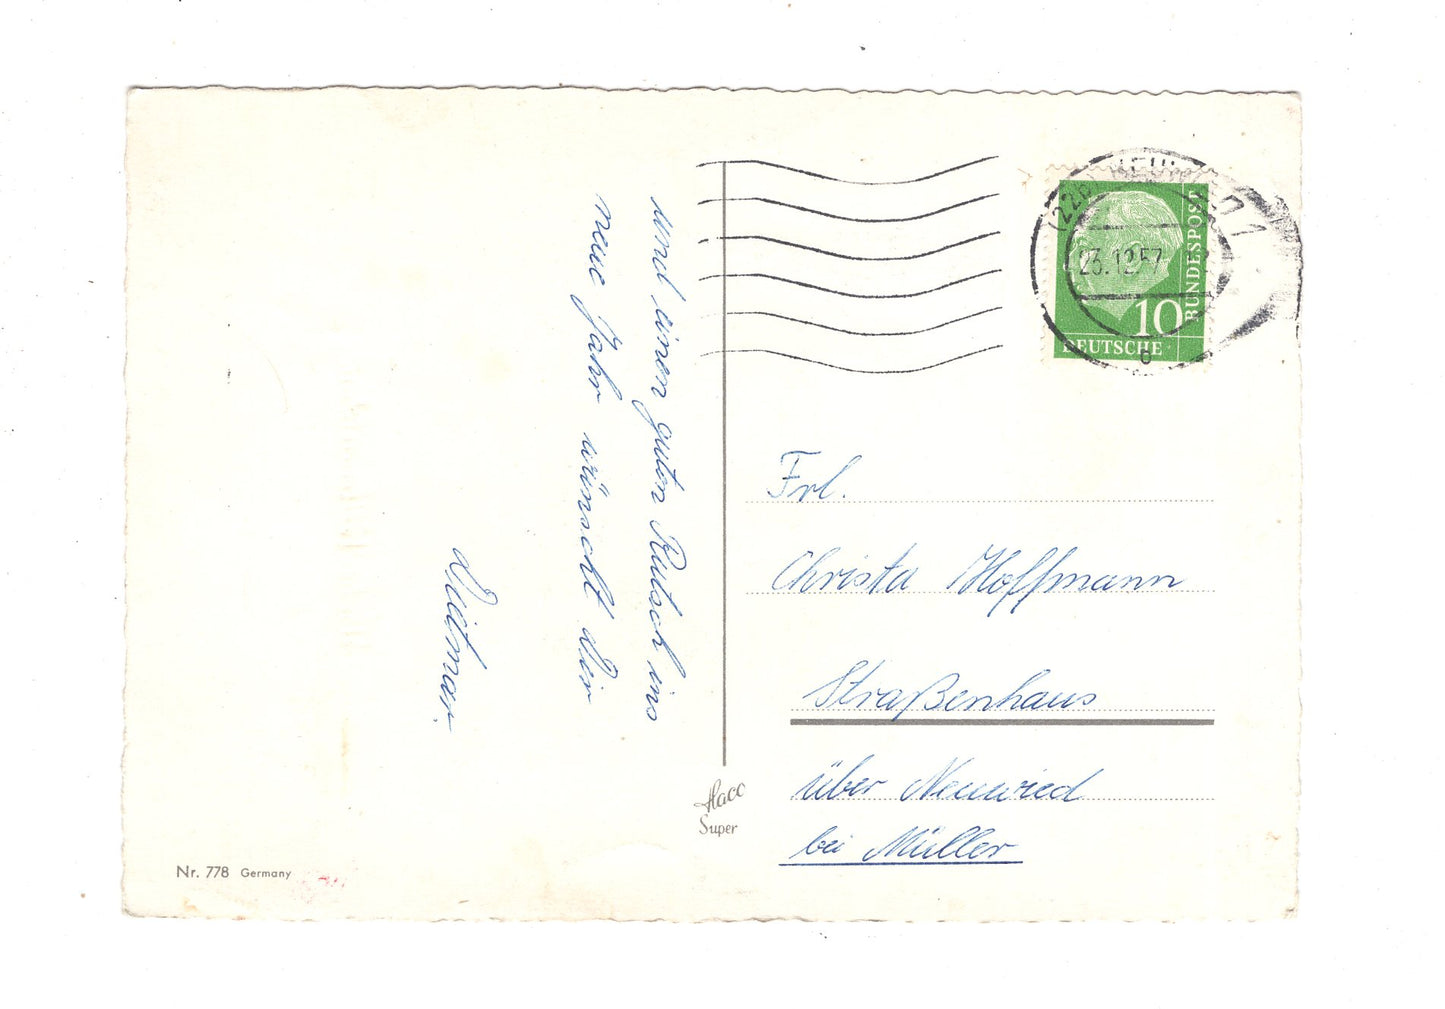 und einen guten Rutsch ins
neue Jahr wünscht Dir
Dietmar.
23.12.57
10
BUNDESPOST
DEUTSCHE
Frl.
Christa Hoffmann
Straßenhaus
über Neuwied
bei Müller
Haco
Super
Nr. 778 Germany